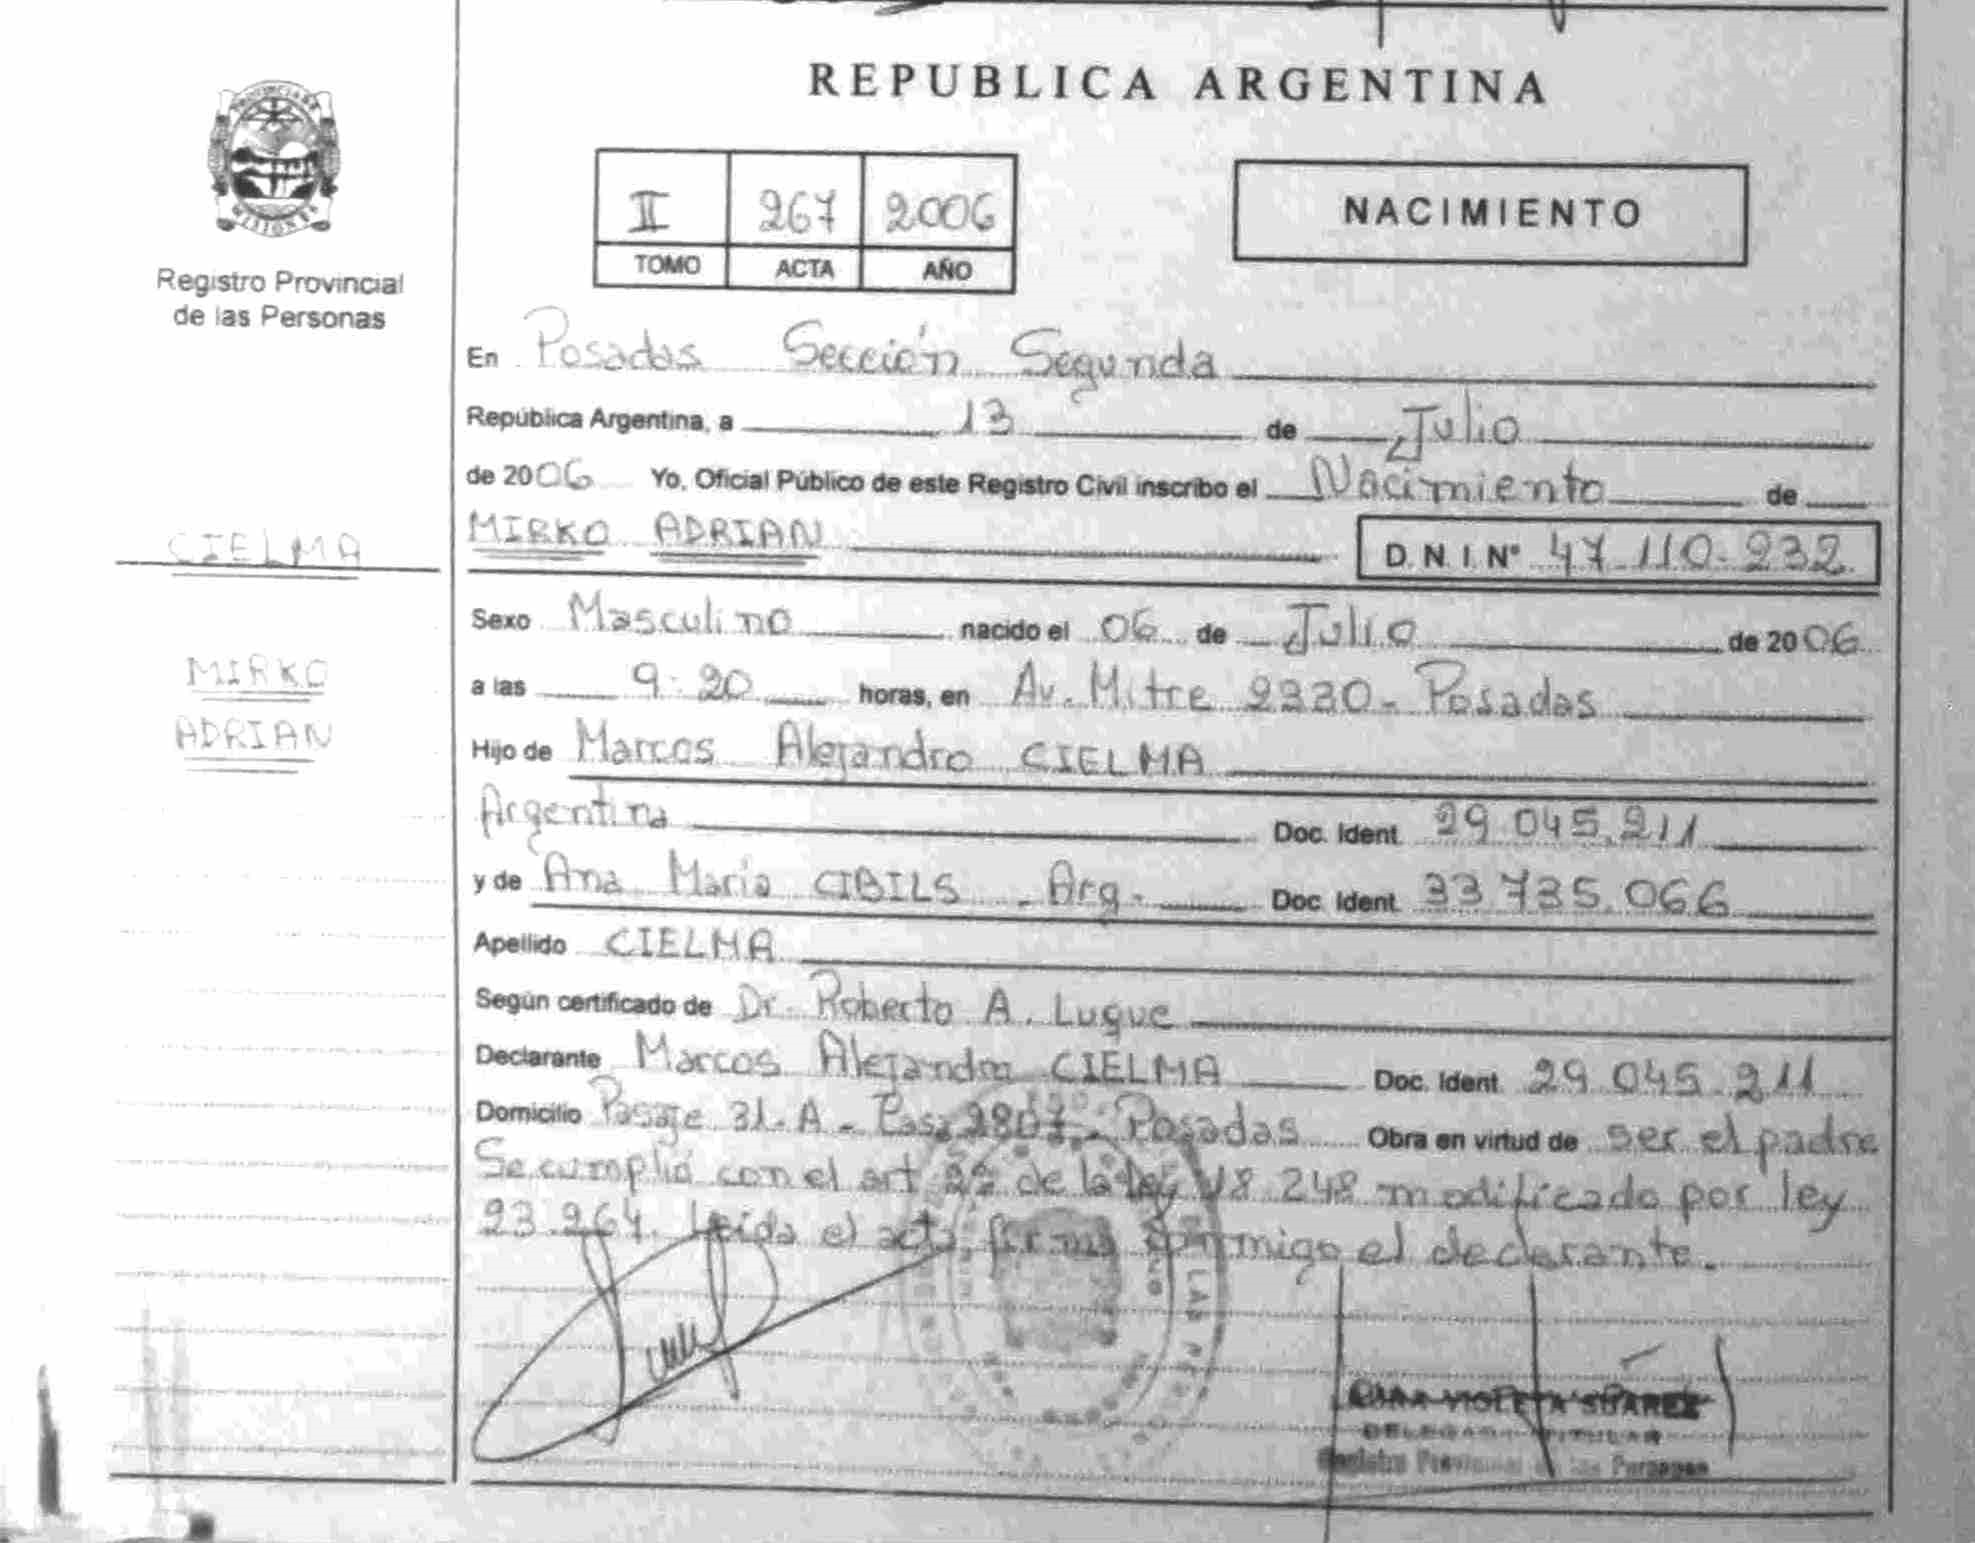 REPUBLICA ARGENTINA
PROVINCIA DE
MISIONES
Registro Provincial
de las Personas
II 267 2006
TOMO ACTA AÑO
NACIMIENTO
En Posadas Sección Segunda
República Argentina, a 13 de Julio
de 2006 Yo, Oficial Público de este Registro Civil inscribo el Nacimiento de
CIELMA
MIRKO ADRIAN D.N.I. Nº 47.110.232
Sexo Masculino nacido el 06 de Julio de 2006
MIRKO
ADRIAN
a las 9:20 horas, en Av. Mitre 2330 - Posadas
Hijo de Marcos Alejandro CIELMA
Argentina Doc. Ident. 29.045.211
y de Ana María CIBILS - Arg. - Doc. Ident. 33.735.066
Apellido CIELMA
Según certificado de Dr. Roberto A. Luque
Declarante Marcos Alejandro CIELMA Doc. Ident. 29.045.211
Domicilio Pasaje 31-A - Casa 2807 - Posadas Obra en virtud de ser el padre
Se cumplió con el art 22 de la ley 18.248 modificado por ley
23.264. Leida el acta, firma conmigo el declarante.
VIOLETA SUAREZ
DELEGADA TITULAR
Registro Provincial de las Personas